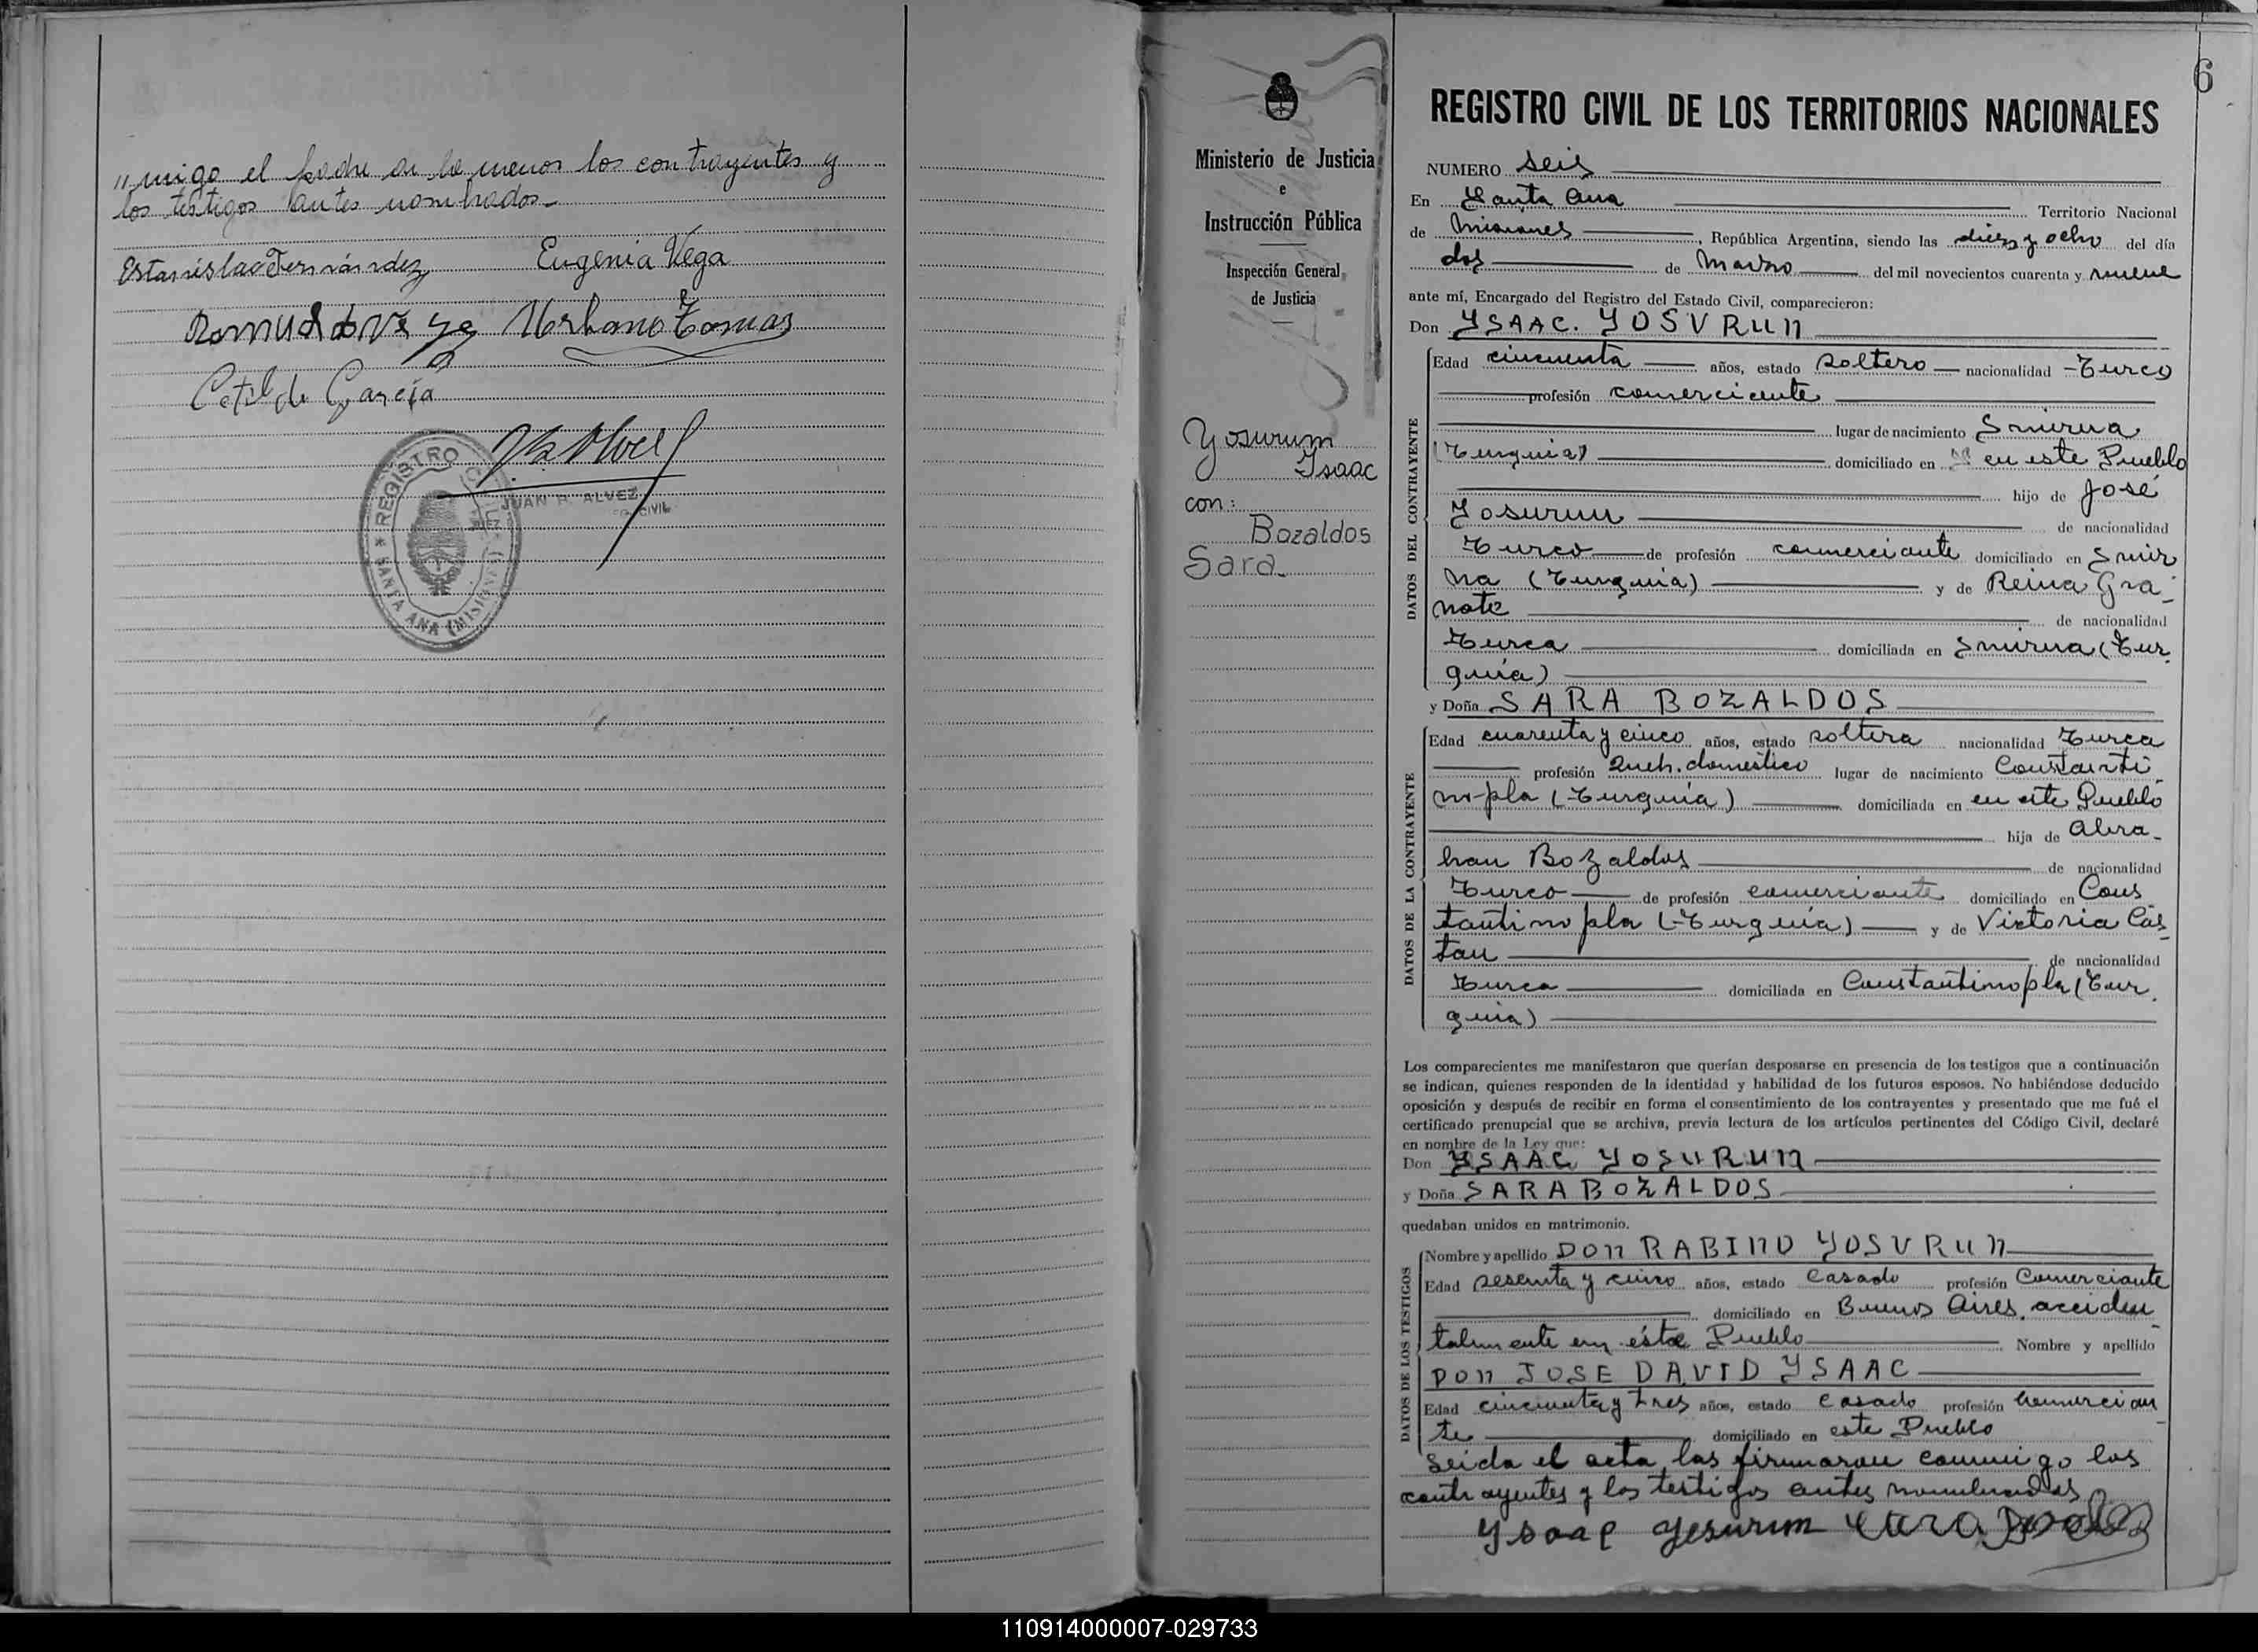 "migo el padre de la menor los contrayentes y
los testigos antes nombrados.-
Estanislao Fernández Eugenia Vega
Urbano Tomas
Cotilde García
REGISTRO CIVIL
SANTA ANA (MISIONES)
JUAN R. ALVEZ
CIVIL
Ministerio de Justicia
e
Instrucción Pública
Inspección General
de Justicia
Yosurum
Ysaac
con:
Bozaldos
Sara
6
REGISTRO CIVIL DE LOS TERRITORIOS NACIONALES
NUMERO seis
En Santa Ana Territorio Nacional
de Misiones, República Argentina, siendo las diez y ocho del día
dos de Marzo del mil novecientos cuarenta y nueve
ante mí, Encargado del Registro del Estado Civil, comparecieron:
Don YSAAC. YOSURUN
DATOS DEL CONTRAYENTE
Edad cincuenta años, estado soltero nacionalidad Turco
profesión comerciante
lugar de nacimiento Smirna
(Turquia) domiciliado en en este Pueblo
hijo de José
Yosurun de nacionalidad
Turco de profesión comerciante domiciliado en Smir
na (Turquia) y de Reina Gra-
note de nacionalidad
Turca domiciliada en Smirna (Tur
quia)
y Doña SARA BOZALDOS
DATOS DE LA CONTRAYENTE
Edad cuarenta y cinco años, estado soltera nacionalidad Turca
profesión Queh. domestico lugar de nacimiento Constanti-
nopla (Turquia) domiciliada en en este Pueblo
hija de Abra-
han Bozaldos de nacionalidad
Turco de profesión comerciante domiciliado en Cons
tantinopla (Turquía) y de Victoria Cas-
tan de nacionalidad
Turca domiciliada en Constantinopla (Tur.
quia)
Los comparecientes me manifestaron que querían desposarse en presencia de los testigos que a continuación
se indican, quienes responden de la identidad y habilidad de los futuros esposos. No habiéndose deducido
oposición y después de recibir en forma el consentimiento de los contrayentes y presentado que me fué el
certificado prenupcial que se archiva, previa lectura de los artículos pertinentes del Código Civil, declaré
en nombre de la Ley que:
Don YSAAC YOSURUN
y Doña SARA BOZALDOS
quedaban unidos en matrimonio.
DATOS DE LOS TESTIGOS
Nombre y apellido DON RABINO YOSURUN
Edad sesenta y cinco años, estado casado profesión Comerciante
domiciliado en Buenos Aires, acciden
talmente en éste Pueblo Nombre y apellido
DON JOSE DAVID YSAAC
Edad cincuenta y tres años, estado casado profesión comercian
te domiciliado en este Pueblo
Leida el acta, las firmaron conmigo los
contrayentes y los testigos antes nombrados
Ysaac Yesurum Sara
110914000007-029733